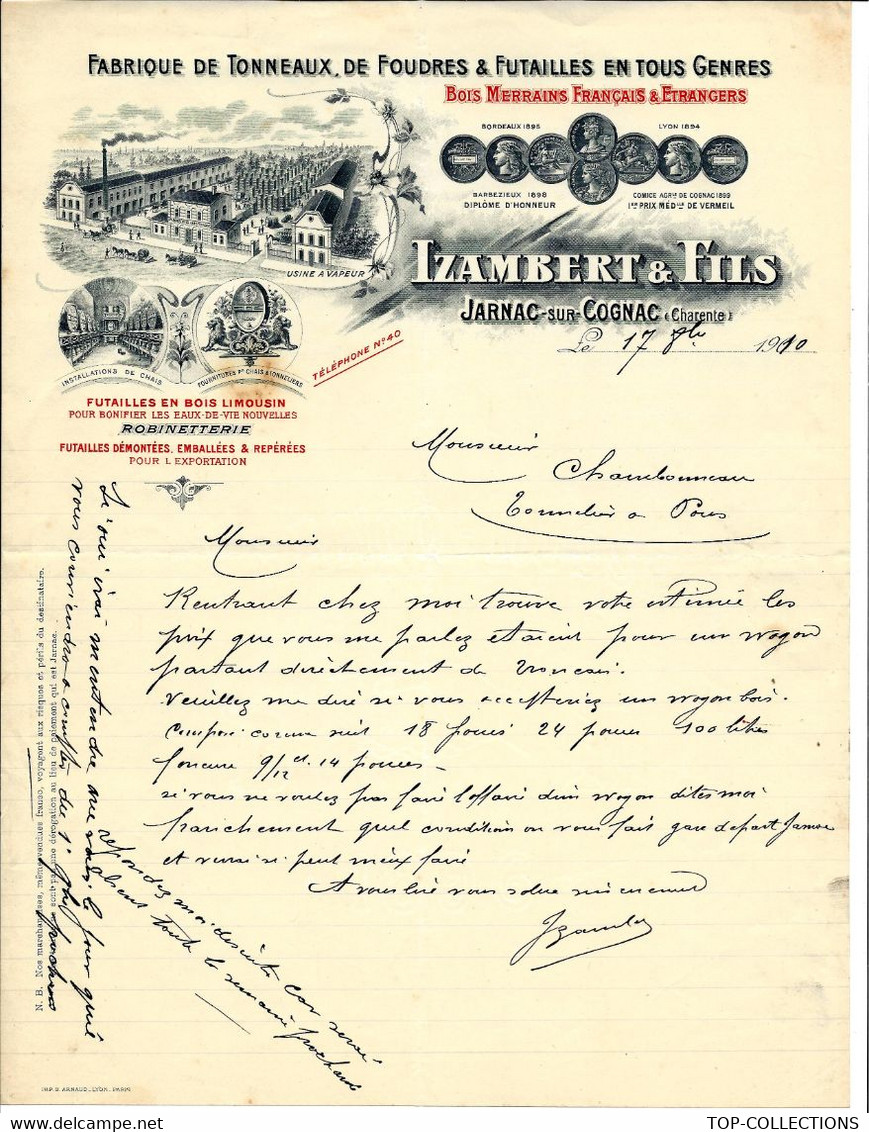 FABRIQUE DE TONNEAUX, DE FOUDRES & FUTAILLES EN TOUS GENRES
BOIS MERRAINS FRANÇAIS & ETRANGERS
BORDEAUX 1895
LYON 1894
BARBEZIEUX 1898
DIPLÔME D'HONNEUR
COMICE AGRle DE COGNAC 1899
1er PRIX MÉDlle DE VERMEIL
USINE A VAPEUR
IZAMBERT & FILS
JARNAC-SUR-COGNAC (Charente)
Le 17 1910
INSTALLATIONS DE CHAIS
FOURNITURES Pr CHAIS & TONNELIERS
TÉLÉPHONE No 40
FUTAILLES EN BOIS LIMOUSIN
POUR BONIFIER LES EAUX-DE-VIE NOUVELLES
ROBINETTERIE
FUTAILLES DÉMONTÉES, EMBALLÉES & REPÉRÉES
POUR L'EXPORTATION
Monsieur
Chambonneau
Tonnelier a Pons
Monsieur
Rentrant chez moi trouve votre estimée les
prix que vous me parlez etaient pour un wagon
partant directement de
Veuillez me dire si vous accepteriez un wagon bois.
Compose comme suit 18 pouces 24 pouces 100 litres
foncure 9/12 et 14 pouces -
si vous ne voulez pas faire l'affaire d'un wagon dites moi
franchement quel condition on vous fait gare depart Jarnac
et verrai si peut mieux faire
A vous lire vous salue sincerement
Izambert
repondez moi desuite car serai
absent toute la semaine prochaine
vous conviendra a compter du 1er prochain
N. B. Nos marchandises, même vendues franco, voyagent aux risques et périls du destinataire.
IMP. B. ARNAUD_LYON_PARIS
TOP-COLLECTIONS